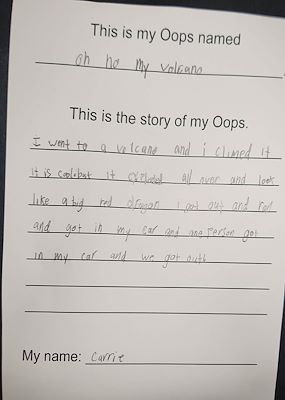 This is my Oops named
oh no my volcano
This is the story of my Oops.
I went to a volcano and i climed it
it is coole but it exploded all over and look
like a big red dragon i got out and ran
and got in my car and one person got
in my car and we got out
My name: Carrie